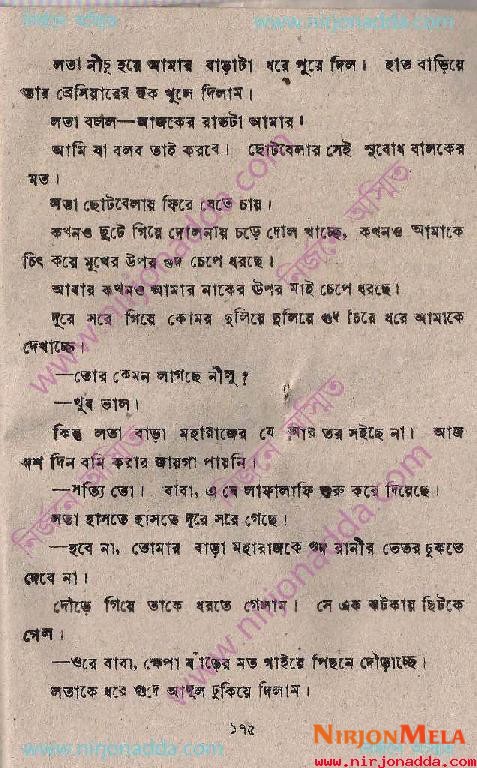 নির্জনে অস্মিত www.nirjonadda.com
লতা নীচু হয়ে আমার বাড়াটা ধরে পুরে দিল। হাত বাড়িয়ে
তার ব্রেসিয়ারের হুক খুলে দিলাম।
লতা বলল—আজকের রাতটা আমার।
আমি যা বলব তাই করবে। ছোটবেলার সেই সুবোধ বালকের
মত।
লতা ছোটবেলায় ফিরে যেতে চায়।
কখনও ছুটে গিয়ে দোলনায় চড়ে দোল খাচ্ছে, কখনও আমাকে
চিৎ করে মুখের উপর গুদ চেপে ধরছে।
আবার কখনও আমার নাকের উপর মাই চেপে ধরছে।
দূরে সরে গিয়ে কোমর দুলিয়ে দুলিয়ে গুদ চিরে ধরে আমাকে
দেখাচ্ছে।
—তোর কেমন লাগছে নীলু?
—খুব ভাল।
কিন্তু লতা বাড়া মহারাজের যে আর তর সইছে না। আজ
দশ দিন বমি করার জায়গা পায়নি।
—সত্যি তো। বাবা, এ যে লাফালাফি শুরু করে দিয়েছে।
লতা হাসতে হাসতে দূরে সরে গেছে।
—হবে না, তোমার বাড়া মহারাজকে গুদ রানীর ভেতর ঢুকতে
দেবে না।
দৌড়ে গিয়ে তাকে ধরতে গেলাম। সে এক ঝটকায় ছিটকে
গেল।
—ওরে বাবা, ক্ষেপা ষাঁড়ের মত গাইরে পিছনে দৌড়াচ্ছে।
লতাকে ধরে গুদে আঙুল ঢুকিয়ে দিলাম।
১৭৫
www.nirjonadda.com নির্জনে অস্মিত
www.nirjonadda.com নির্জনে অস্মিত
নির্জনে অস্মিত www.nirjonadda.com
www.nirjonadda.com
NIRJONMELA
www.nirjonadda.com